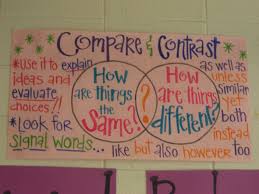 Compare & Contrast
*Use it to explain
ideas and
evaluate
choices!!
*Look for
signal words...
How
are things
the
Same?
?
How
are things
different?
as well as
unless
similar
yet
both
instead
too
like but also however